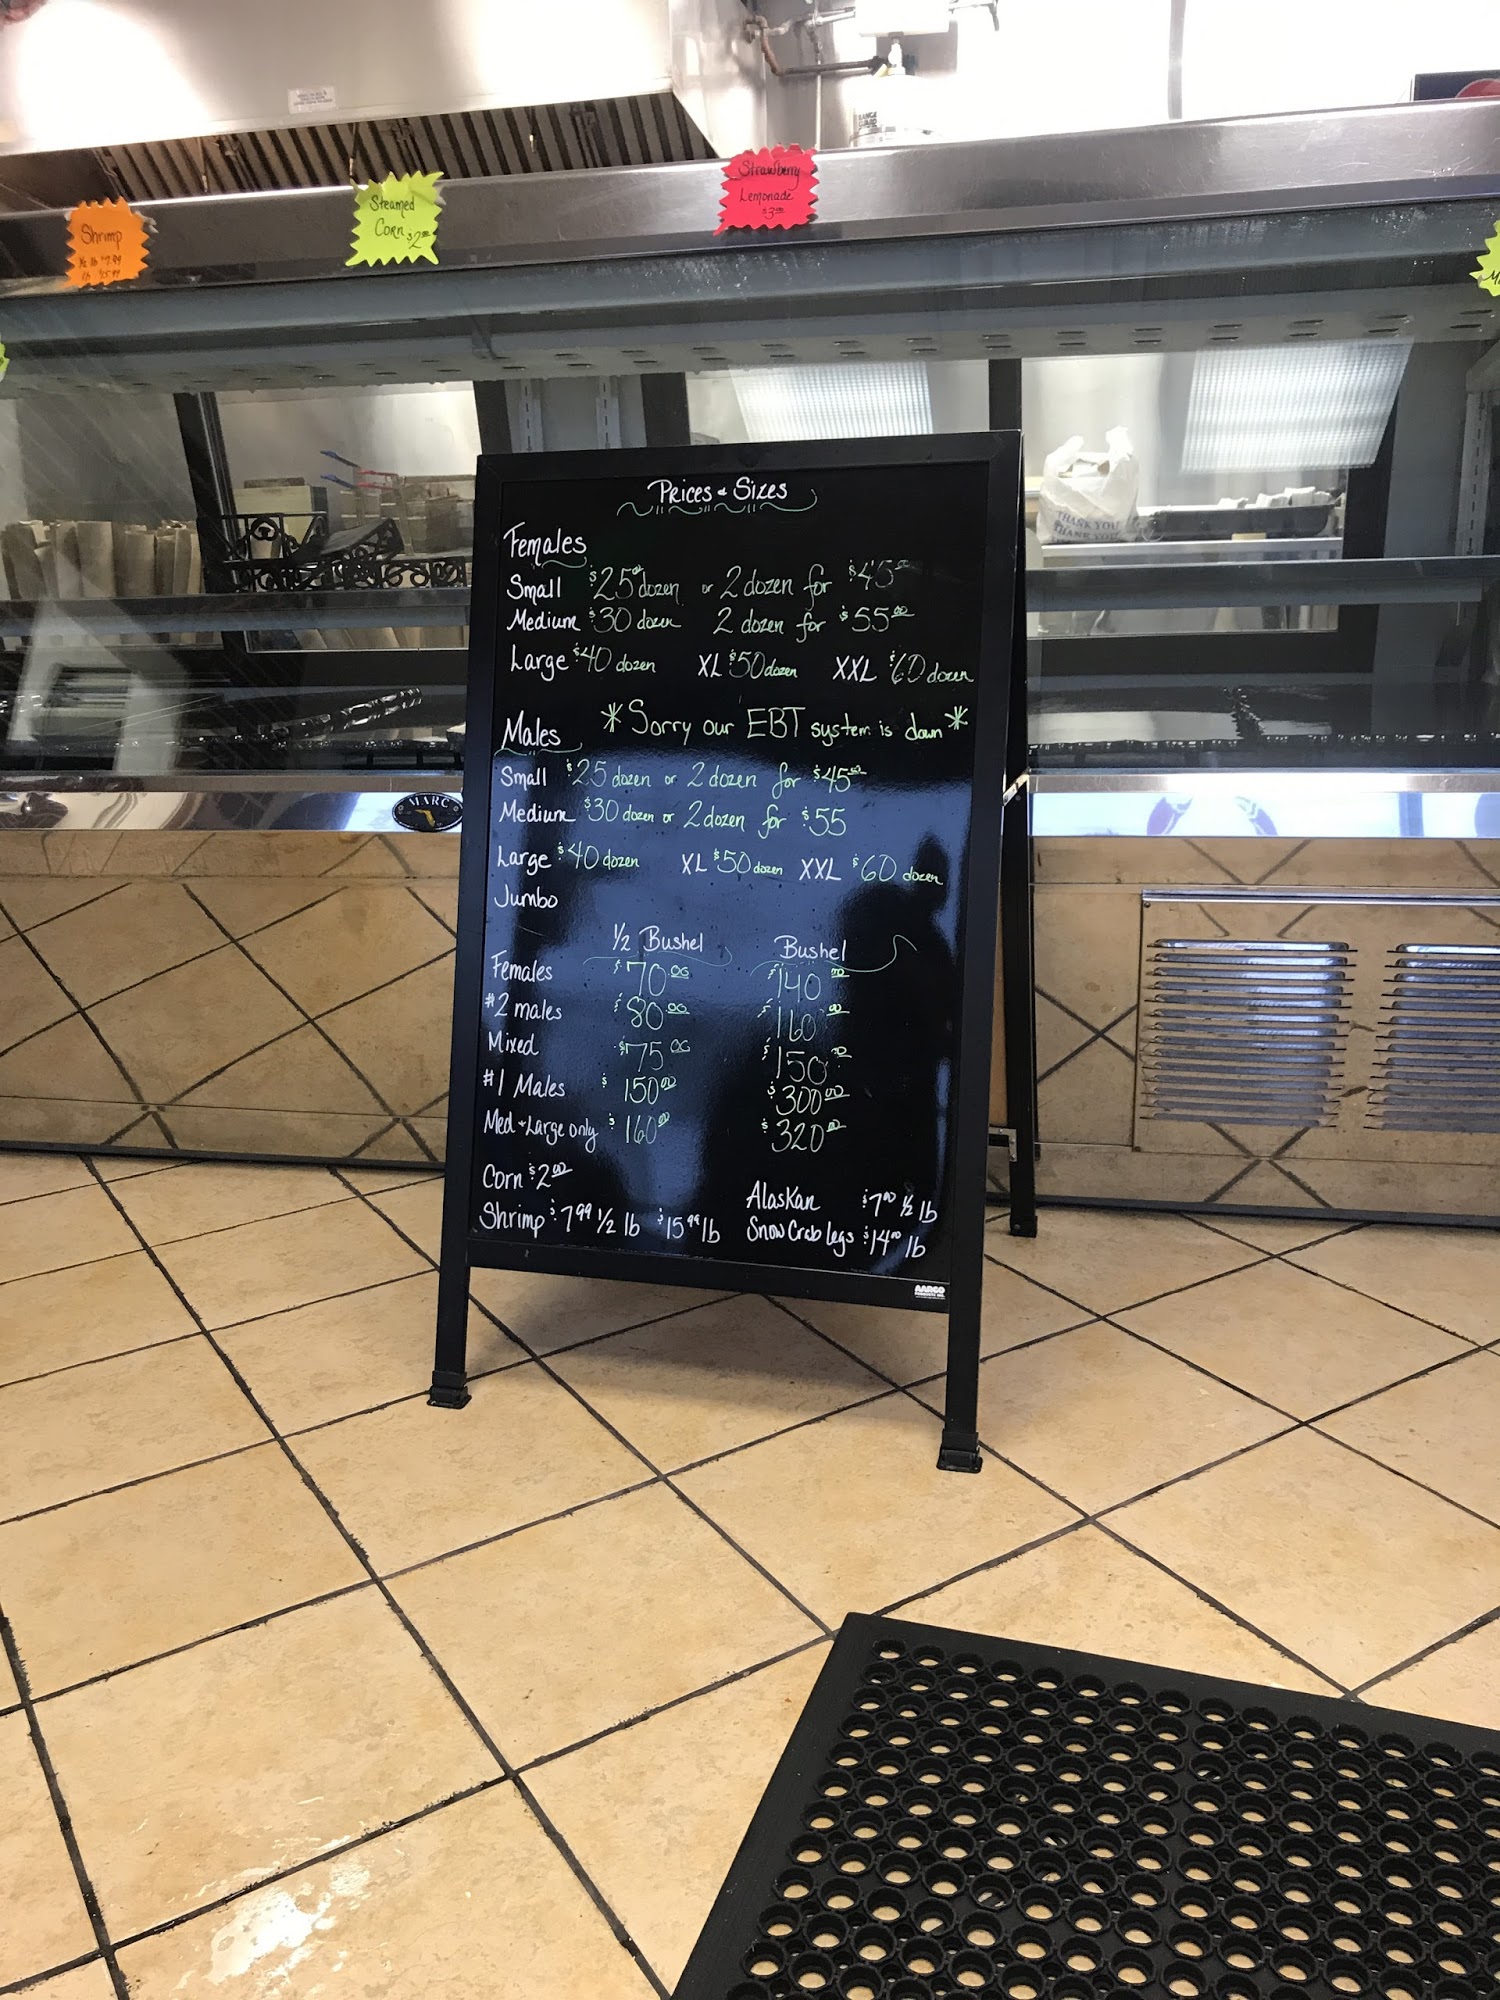 Strawberry
Lemonade
$3.00
Steamed
Corn $2.00
Shrimp
1/2 lb $7.99
lb $15.99
Prices & Sizes
Females
Small $25.00 dozen or 2 dozen for $45.00
Medium $30 dozen 2 dozen for $55.00
Large $40 dozen XL $50 dozen XXL $60 dozen
Males *Sorry our EBT system is down*
Small $25 dozen or 2 dozen for $45.00
Medium $30 dozen or 2 dozen for $55
Large $40 dozen XL $50 dozen XXL $60 dozen
Jumbo
1/2 Bushel Bushel
Females $70.00 $140.00
#2 males $80.00 $160.00
Mixed $75.00 $150.00
#1 Males $150.00 $300.00
Med & Large only $160.00 $320.00
Corn $2.00
Shrimp $7.99 1/2 lb $15.99 lb
Alaskan $7.00 1/2 lb
Snow Crab legs $14.00 lb
AARCO
MARC
THANK YOU
THANK YOU
RANGE
GUARD